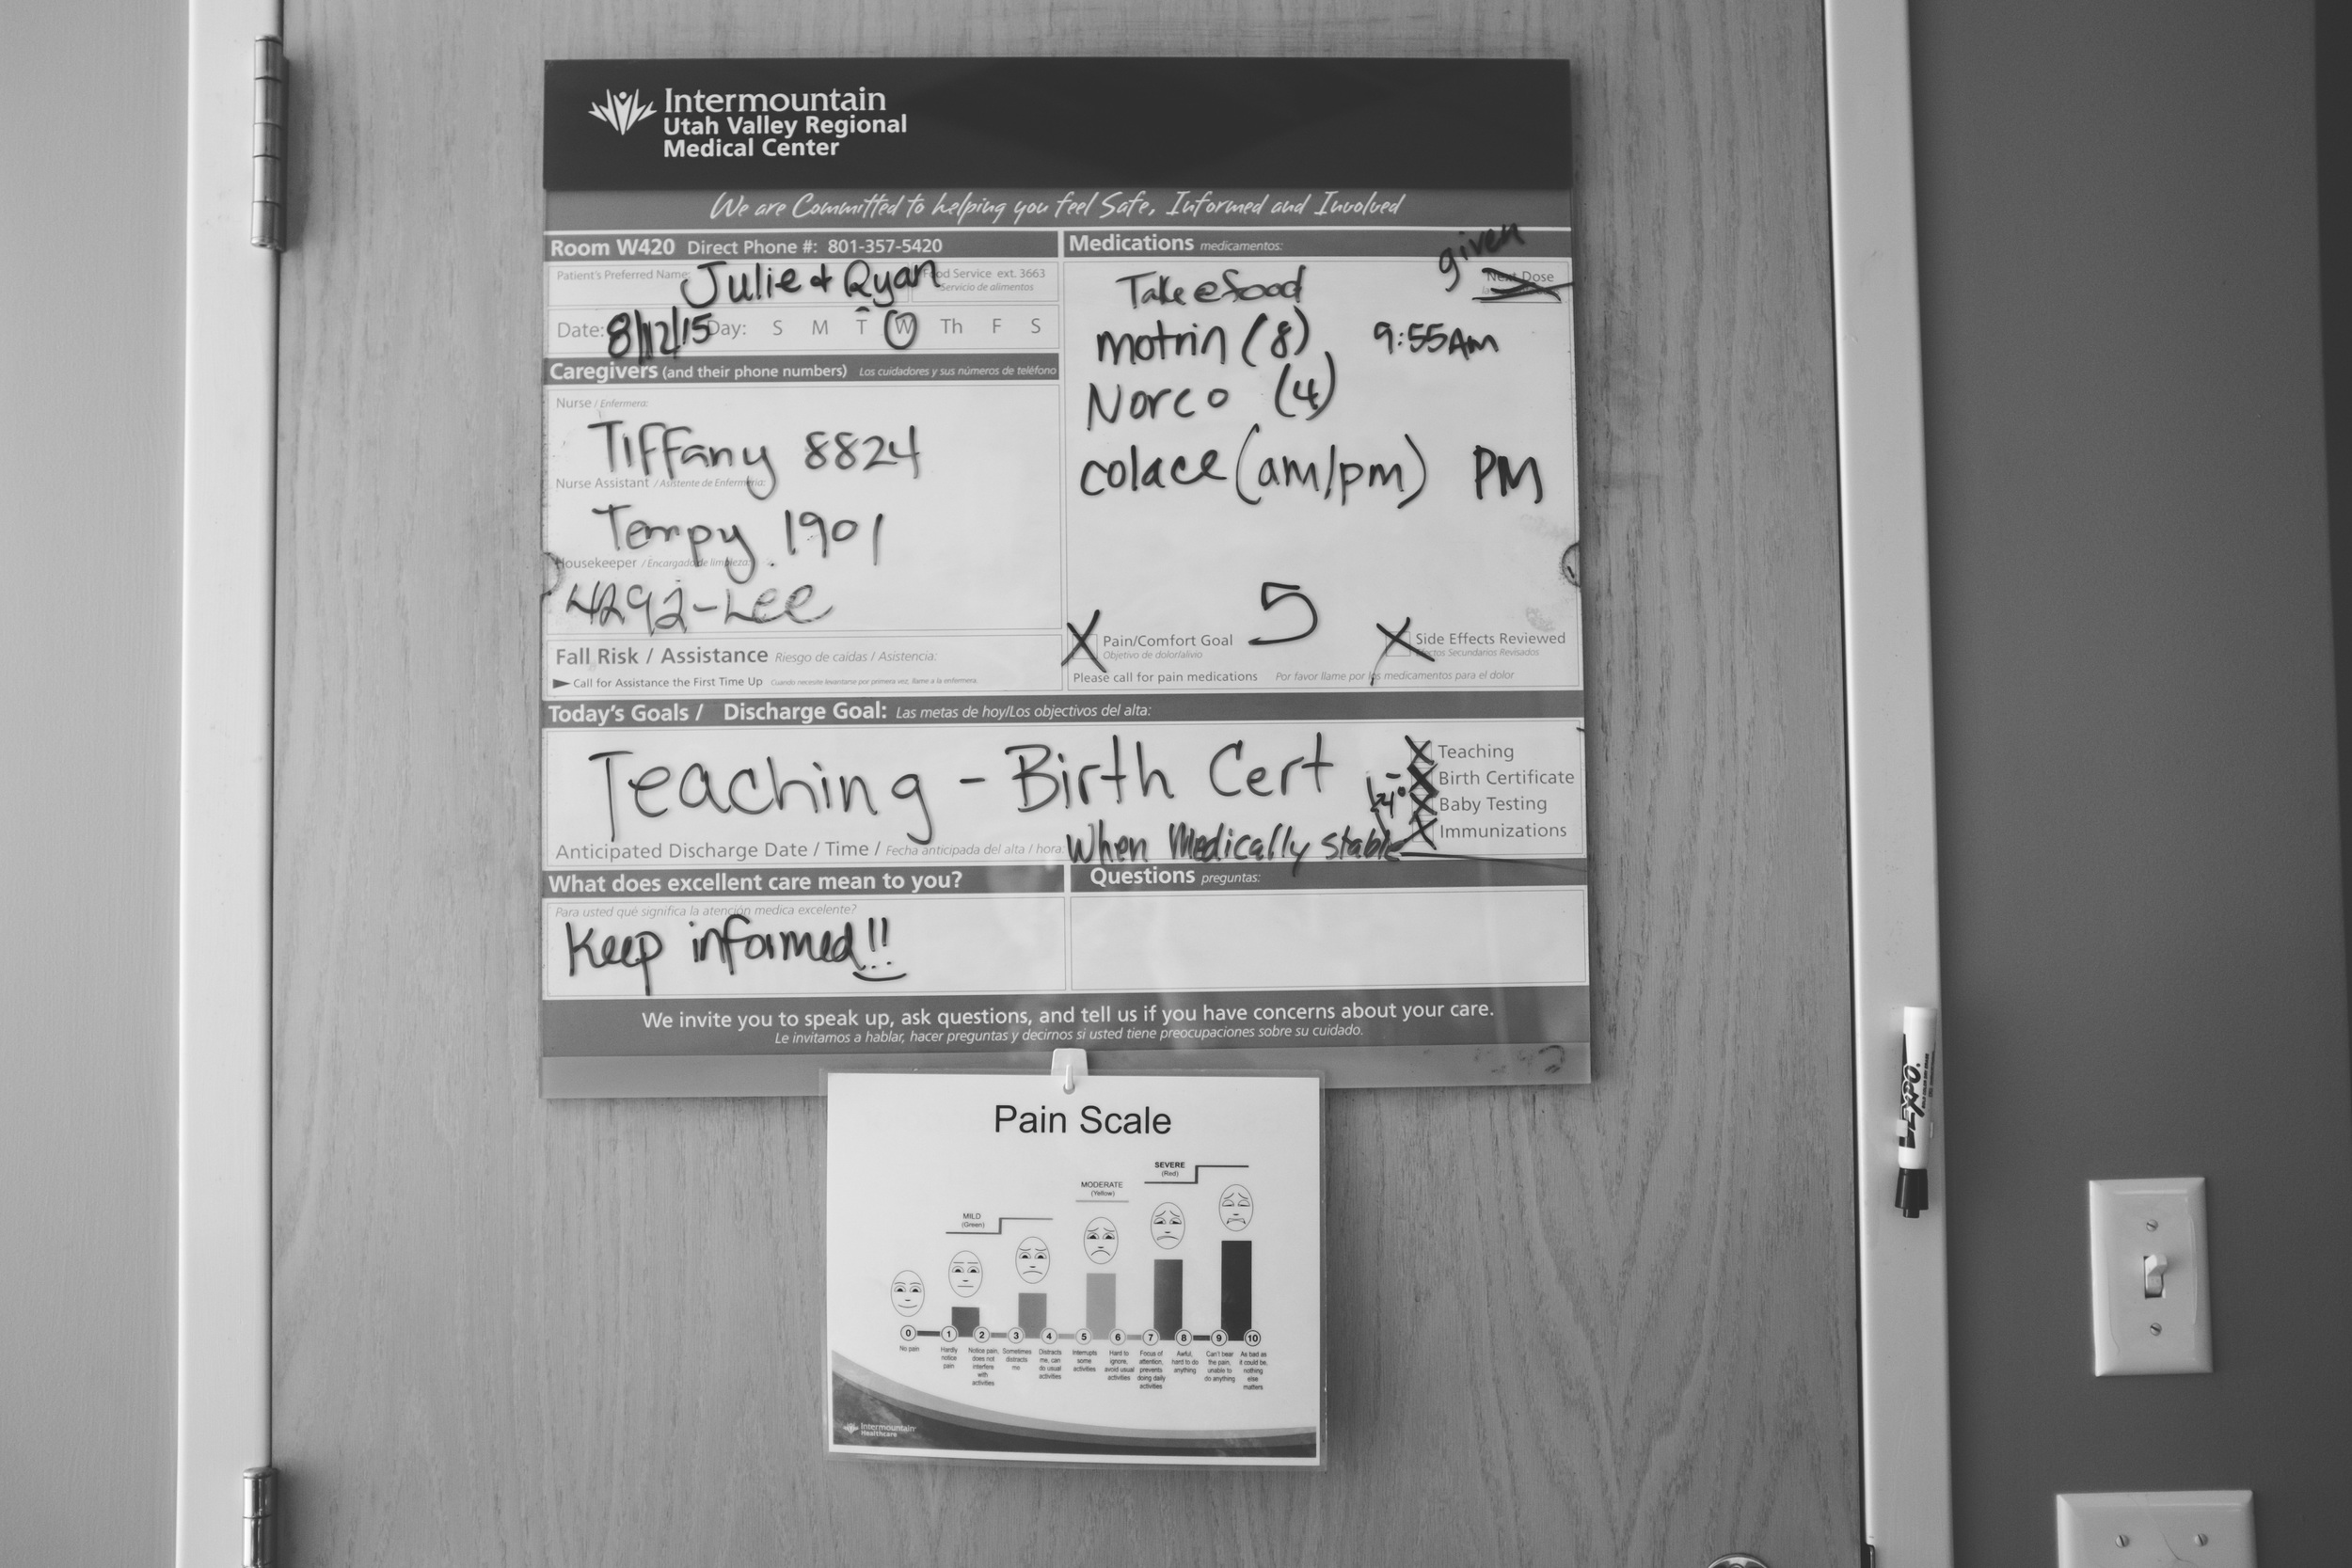 Intermountain
Utah Valley Regional
Medical Center
We are Committed to helping you feel Safe, Informed and Involved
Room W420 Direct Phone #: 801-357-5420
Patient's Preferred Name: Julie + Ryan
Food Service ext. 3663
Servicio de alimentos
Date: 8/12/15 Day: S M T W Th F S
Caregivers (and their phone numbers) Los cuidadores y sus números de teléfono
Nurse / Enfermera:
Tiffany 8824
Nurse Assistant / Asistente de Enfermería:
Tempy 1901
Housekeeper / Encargado de limpieza:
4292-Lee
Fall Risk / Assistance Riesgo de caidas / Asistencia:
Call for Assistance the First Time Up Cuando necesite levantarse por primera vez, llame a la enfermera.
Medications medicamentos:
given
Next Dose
Take c food
motrin (8) 9:55Am
Norco (4)
colace (am/pm) PM
X Pain/Comfort Goal 5
Objetivo de dolor/alivio
X Side Effects Reviewed
Efectos Secundarios Revisados
Please call for pain medications Por favor llame por los medicamentos para el dolor
Today's Goals / Discharge Goal: Las metas de hoy/Los objectivos del alta:
Teaching - Birth Cert
X Teaching
X Birth Certificate
X Baby Testing
X Immunizations
Anticipated Discharge Date / Time / Fecha anticipada del alta / hora: When Medically stable
What does excellent care mean to you?
Para usted qué significa la atención medica excelente?
Keep informed!!
Questions preguntas:
We invite you to speak up, ask questions, and tell us if you have concerns about your care.
Le invitamos a hablar, hacer preguntas y decirnos si usted tiene preocupaciones sobre su cuidado.
EXPO
Pain Scale
MILD
(Green)
MODERATE
(Yellow)
SEVERE
(Red)
0 1 2 3 4 5 6 7 8 9 10
No pain
Hardly notice pain
Notice pain, does not interfere with activities
Sometimes distracts me
Distracts me, can do usual activities
Interrupts some activities
Hard to ignore, avoid usual activities
Focus of attention, prevents doing daily activities
Awful, hard to do anything
Can't bear the pain, unable to do anything
As bad as it could be, nothing else matters
Intermountain
Healthcare